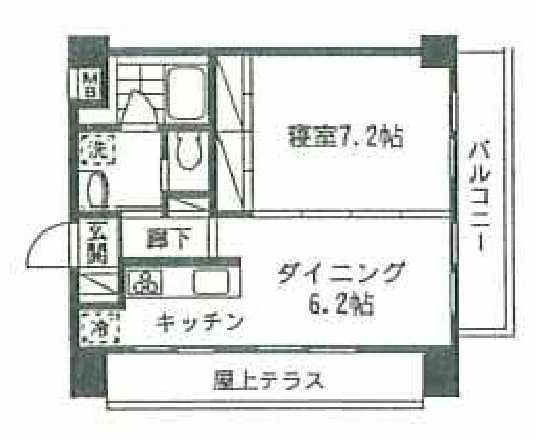 MB
寝室7.2帖
洗
バルコニー
玄関
廊下
ダイニング
6.2帖
冷
キッチン
屋上テラス